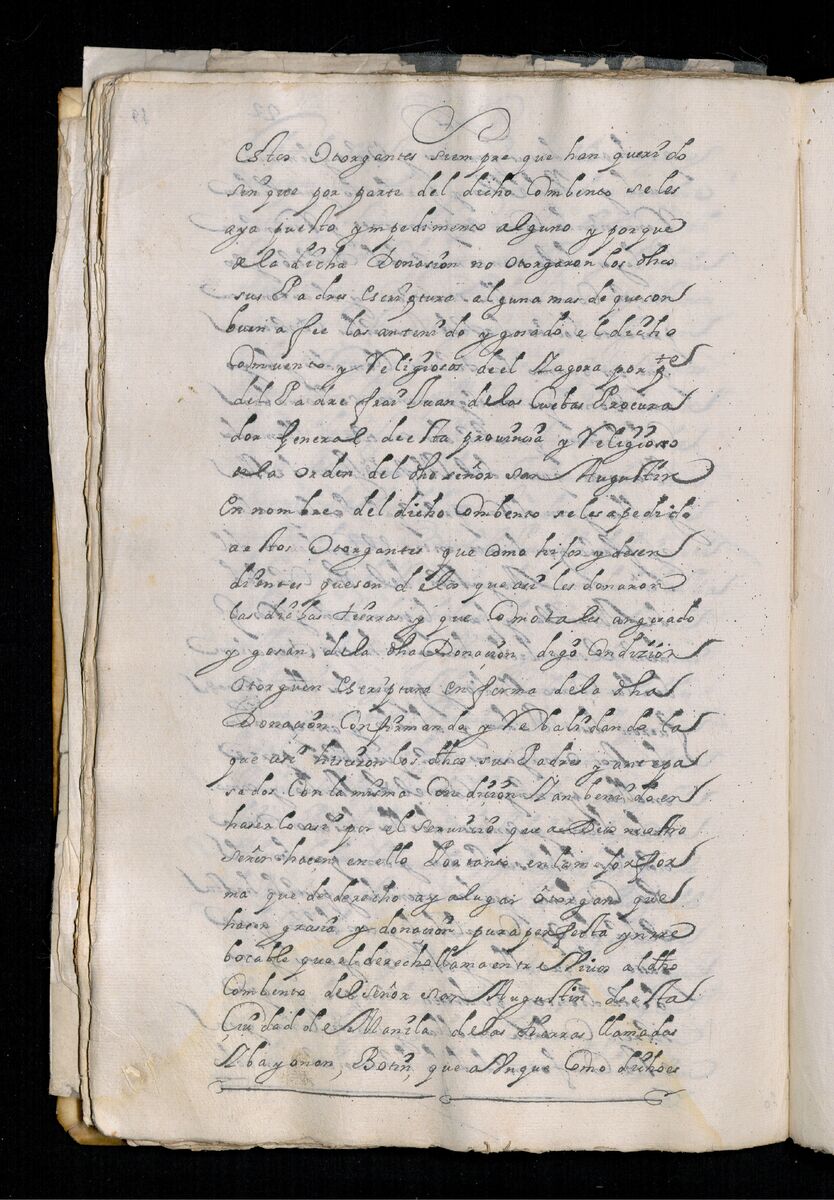 estos otorgantes siempre que han querido
sin que por parte del dicho Combento se les
aya puesto ympedimento alguno y porque
de la dicha Donasion no otorgaron los dhos
sus Padres escriptura alguna mas de que con
buena fee las an tenido y gosado el dicho
Comvento y Religiosos de el Y agora por pte
del Padre frai Juan de las Cuebas Procura
dor General de esta provincia y Religioso
de la orden del dho señor san Augustin
En nombre del dicho Combento se les a pedido
a estos Otorgantes que como hijos y desen
dientes que son de los que asi les donaron
las dichas tierras y que como tales an gosado
y gosan de la dha Donacion digo Condizion
Otorguen Escriptura en forma de la dha
Donacion Confirmando y Rebalidando la
que asi hisieron los dhos sus Padres y antepa
sados Con la misma Condicion Y an benido en
haserlo asi por el servicio que a Dios nuestro
señor hacen en ello Por tanto en la mejor for
ma que de derecho aya lugar otorgan que
hacen grasia y donacion pura perfecta ynrre
bocable que el derecho llama entre Vivos al dho
Combento del señor san Augustin de esta
Ciudad de Manila de las tierras llamadas
Ybayonan, Botin, que aunque Como dichoes